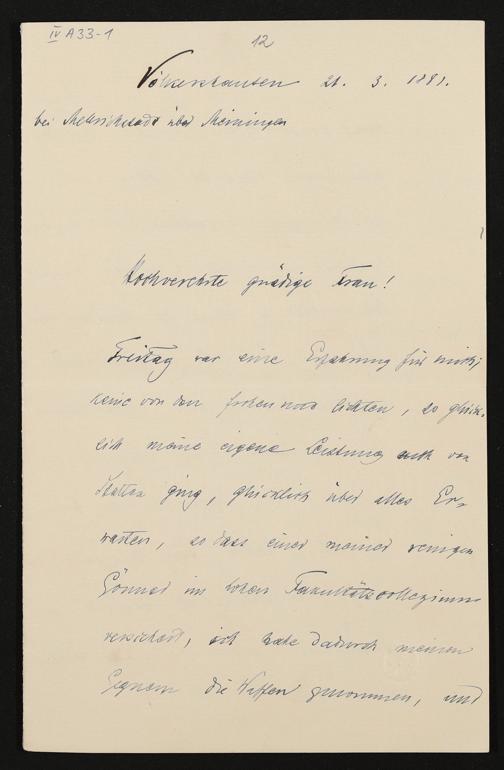 IV A 33-1
12
Völkershausen 21. 3. 1891.
bei Mellrichstadt über Meiningen
Hochverehrte gnädige Frau!
Freitag war eine Erfahrung für mich;
keine von den frohen und lichten, so glück-
lich meine eigene Leistung auch von
Statten ging, glücklich über alles Er-
warten, so dass einer meiner wenigen
Gönner im hohen Fakultätscollegium
versichert, ich habe dadurch meinen
Gegnern die Waffen genommen, und